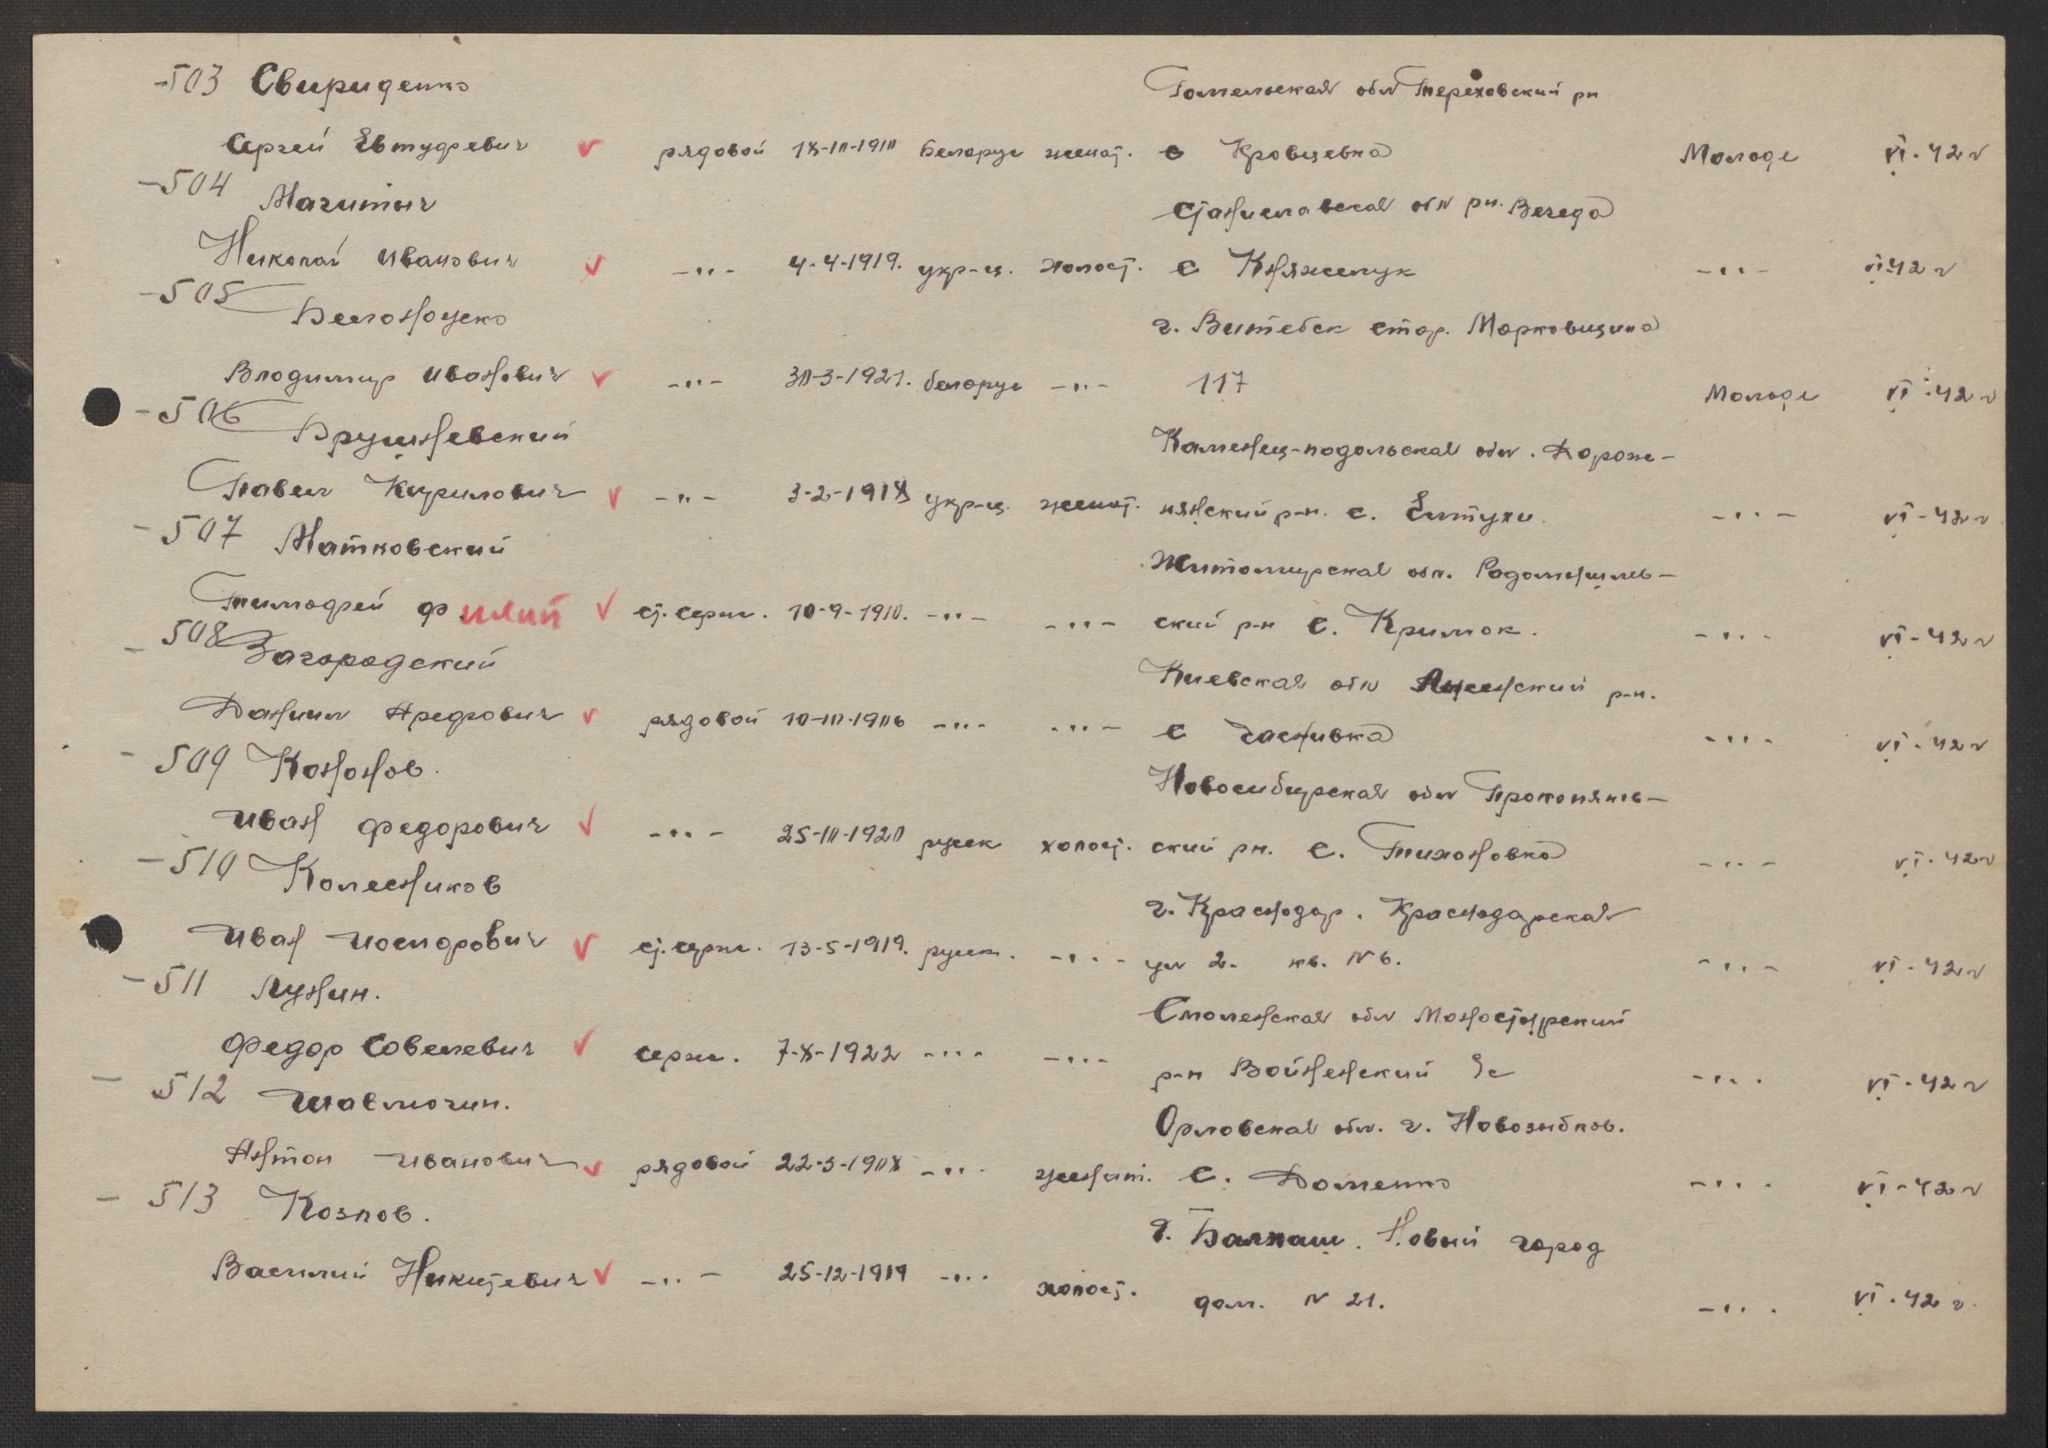 -503 Свириденко Гомельская обл Тереховский рн
Сергей Евтуфевич v рядовой 18-10-1910 Беларус женат. с Кровцевка Молоде VI-42 г
-504 Магитыч Станиславская обл рн. Вегеда
Николай Иванович v -"- 4-4-1919. укр-ц. холост. с Княжелук -"- VI 42 г
-505 Белоноцко г. Витебск стар. Марковщина
Владимир Иванович v -"- 30-3-1921. беларус -"- 117 Молоде VI-42 г
-506 Брушневский Каменец-подольская обл. Дорож-
Павел Кирилович v -"- 3-2-1918 укр-ц. женат. нянский р-н. с. Елтухи. -"- VI-42 г
-507 Матковский Житомирская обл. Радомышлев-
Тимофей Ф илип v ст. серж. 10-9-1910. -"- -"- ский р-н с. Кримок. -"- VI-42 г
- 508 Загородский Киевская обл р-н.
Данил v рядовой 10-10-1906 -"- -"- с Часнивка -"- VI-42 г
- 509 Кононов. Новосибирская обл Прокопянов-
Иван Федорович v -"- 25-10-1920 русск холост. ский рн. с. Тихоновка -"- VI-42 г
-510 Колесников г. Краснодар. Краснодарская
Иван Иосифович v ст. серж. 13-5-1919. русск. -"- ул 2. кв. N 6. -"- VI-42 г
-511 Лунин. Смоленская обл Монастырский
Федор Савелевич v серж. 7-8-1922 -"- -"- р-н Войненский с/с -"- VI-42 г
- 512 Шавлюгин. Орловская обл. г. Новозыбков.
Антон Иванович v рядовой 22-3-1908 -"- женат. с. Доменко -"- VI-42 г
- 513 Козлов. г. Балхаш. Новый город
Василий Никитевич v -"- 25-12-1919 -"- холост. дом. N 21. -"- VI-42 г.